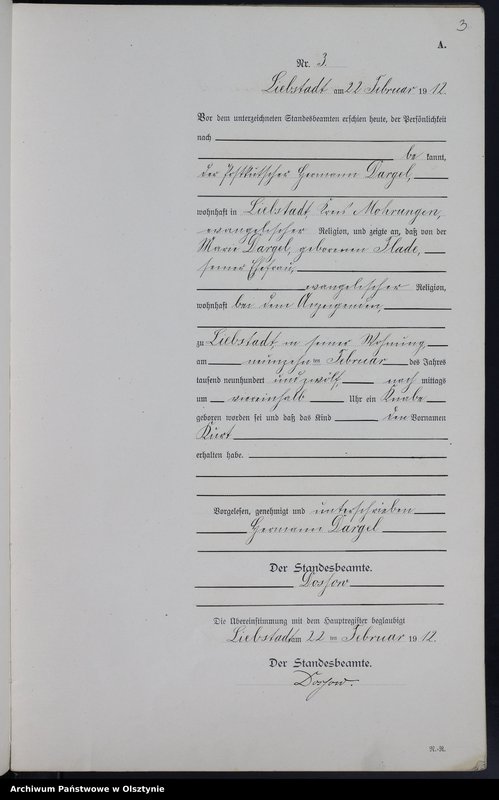 3
A.
Nr. 3.
Liebstadt am 22 Februar 1912.
Vor dem unterzeichneten Standesbeamten erschien heute, der Persönlichkeit
nach
be kannt,
der Postkutscher Hermann Dargel,
wohnhaft in Liebstadt, Kreis Mohrungen,
evangelischer Religion, und zeigte an, daß von der
Marie Dargel, geborenen Flade,
seiner Ehefrau,
evangelischer Religion,
wohnhaft bei dem Anzeigenden,
zu Liebstadt, in seiner Wohnung,
am neunzehnten Februar des Jahres
tausend neunhundert und zwölf, nach mittags
um Uhr ein Knabe
geboren worden sei und daß das Kind den Vornamen
Kurt
erhalten habe.
Vorgelesen, genehmigt und unterschrieben
Hermann Dargel
Der Standesbeamte.
Dossow
Die Übereinstimmung mit dem Hauptregister beglaubigt
Liebstadt am 22 ten Februar 1912.
Der Standesbeamte.
Dossow.
R.-R.
Archiwum Państwowe w Olsztynie